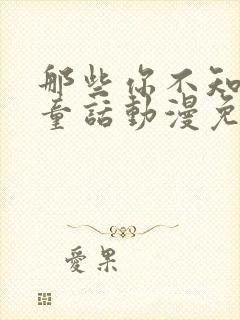 那些你不知
童話動漫免
愛果